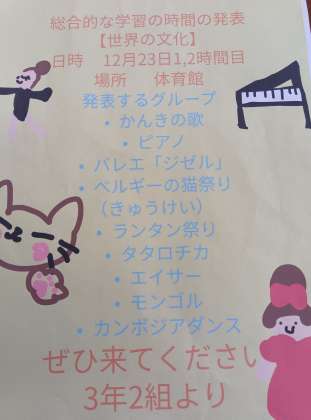 総合的な学習の時間の発表
【世界の文化】
日時 12月23日1,2時間目
場所 体育館
発表するグループ
・かんきの歌
・ピアノ
・バレエ「ジゼル」
・ベルギーの猫祭り
（きゅうけい）
・ランタン祭り
・タタロチカ
・エイサー
・モンゴル
・カンボジアダンス
ぜひ来てください
3年2組より